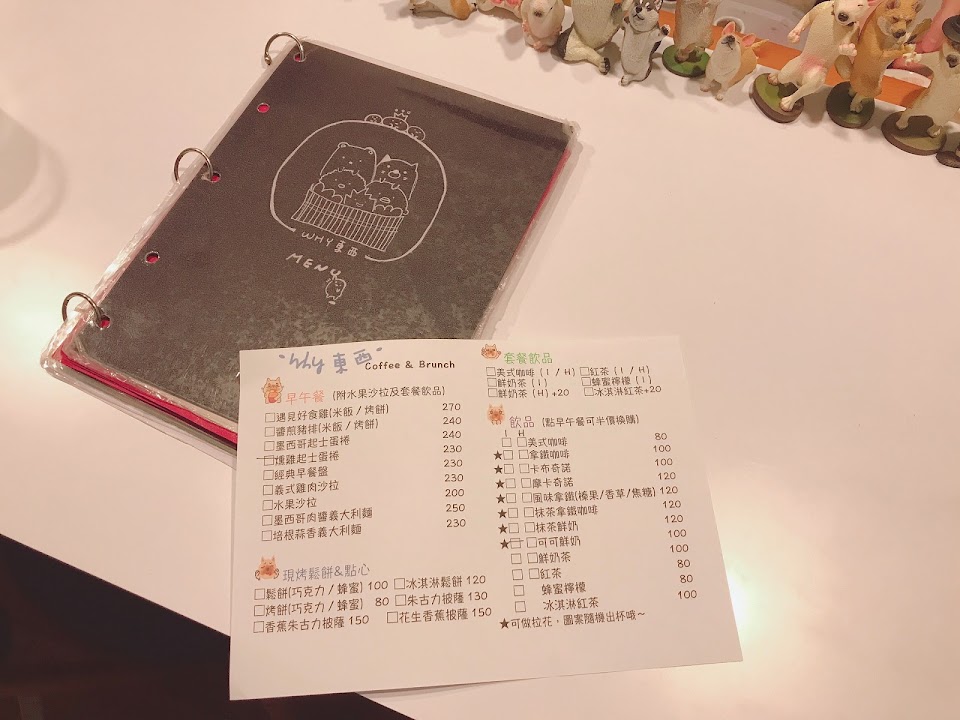 WHY 東西
MENU
"why 東西"
Coffee & Brunch
早午餐 (附水果沙拉及套餐飲品)
□遇見好食雞(米飯/烤餅) 270
□醬煎豬排(米飯/烤餅) 240
□墨西哥起士蛋捲 240
□燻雞起士蛋捲 230
□經典早餐盤 230
□義式雞肉沙拉 230
□水果沙拉 200
□墨西哥肉醬義大利麵 250
□培根蒜香義大利麵 230
現烤鬆餅&點心
□鬆餅(巧克力/蜂蜜) 100 □冰淇淋鬆餅 120
□烤餅(巧克力/蜂蜜) 80 □朱古力披薩 130
□香蕉朱古力披薩 150 □花生香蕉披薩 150
套餐飲品
□美式咖啡 (I/H) □紅茶 (I/H)
□鮮奶茶 (I) □蜂蜜檸檬 (I)
□鮮奶茶 (H)+20 □冰淇淋紅茶+20
飲品 (點早午餐可半價換購)
I H
□ □美式咖啡 80
★□ □拿鐵咖啡 100
★□ □卡布奇諾 100
★□ □摩卡奇諾 120
★□ □風味拿鐵(榛果/香草/焦糖) 120
★□ □抹茶拿鐵咖啡 120
★□ □抹茶鮮奶 120
★□ □可可鮮奶 100
□ □鮮奶茶 100
□ □紅茶 80
□ 蜂蜜檸檬 80
□ 冰淇淋紅茶 100
★可做拉花，圖案隨機出杯哦~